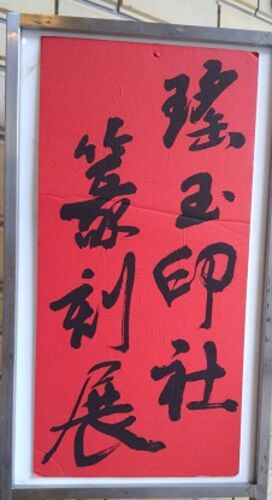 瑤玉印社
篆刻展